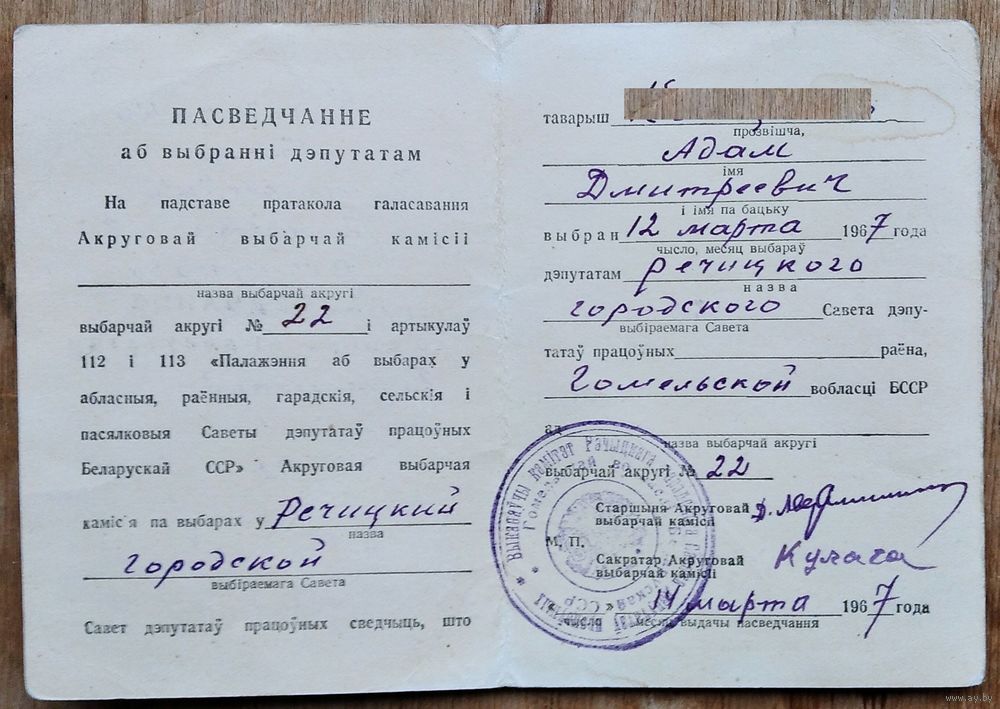 ПАСВЕДЧАННЕ
аб выбранні дэпутатам
На падставе пратакола галасавання
Акруговай выбарчай камісіі
назва выбарчай акругі
выбарчай акругі № 22 і артыкулаў
112 і 113 «Палажэння аб выбарах у
абласныя, раённыя, гарадскія, сельскія і
пасялковыя Саветы дэпутатаў працоўных
Беларускай ССР» Акруговая выбарчая
камісʼя па выбарах у Речицкий
назва
городской
выбіраемага Савета
Савет дэпутатаў працоўных сведчыць, што
таварыш
прозвішча,
Адам
імя
Дмитреевич
і імя па бацьку
выбран 12 марта 1967 года
чысло, месяц выбараў
дэпутатам речицкого
назва
городского Савета дэпу-
выбіраемага Савета
татаў працоўных раёна,
Гомельской вобласці БССР
ад
назва выбарчай акругі
выбарчай акругі № 22
Старшыня Акруговай
выбарчай камісіі
М. П.
Сакратар Акруговай Кулага
выбарчай камісіі
14 марта 1967 года
месяц выдачы пасведчання
Выканаўчы камітэт Рэчыцкага
Гомельскай
www.ay.by